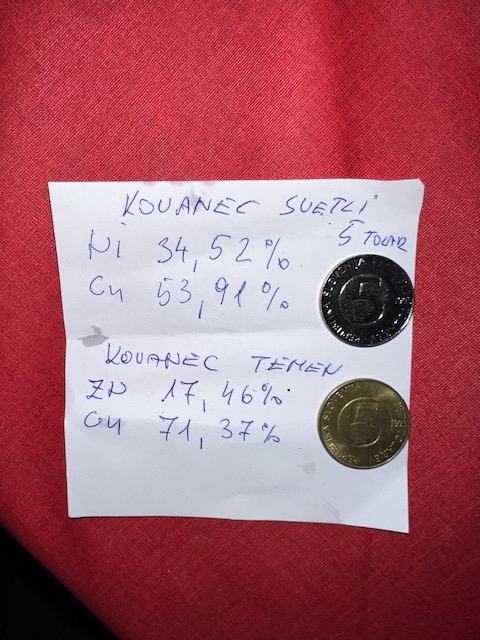 KOVANEC SVETLI
5 TOLAR
Ni 34,52%
Cu 53,91%
5
REPUBLIKA SLOVENIJA
KOVANEC TEMEN
ZN 17,46%
Cu 71,37%
5
REPUBLIKA SLOVENIJA